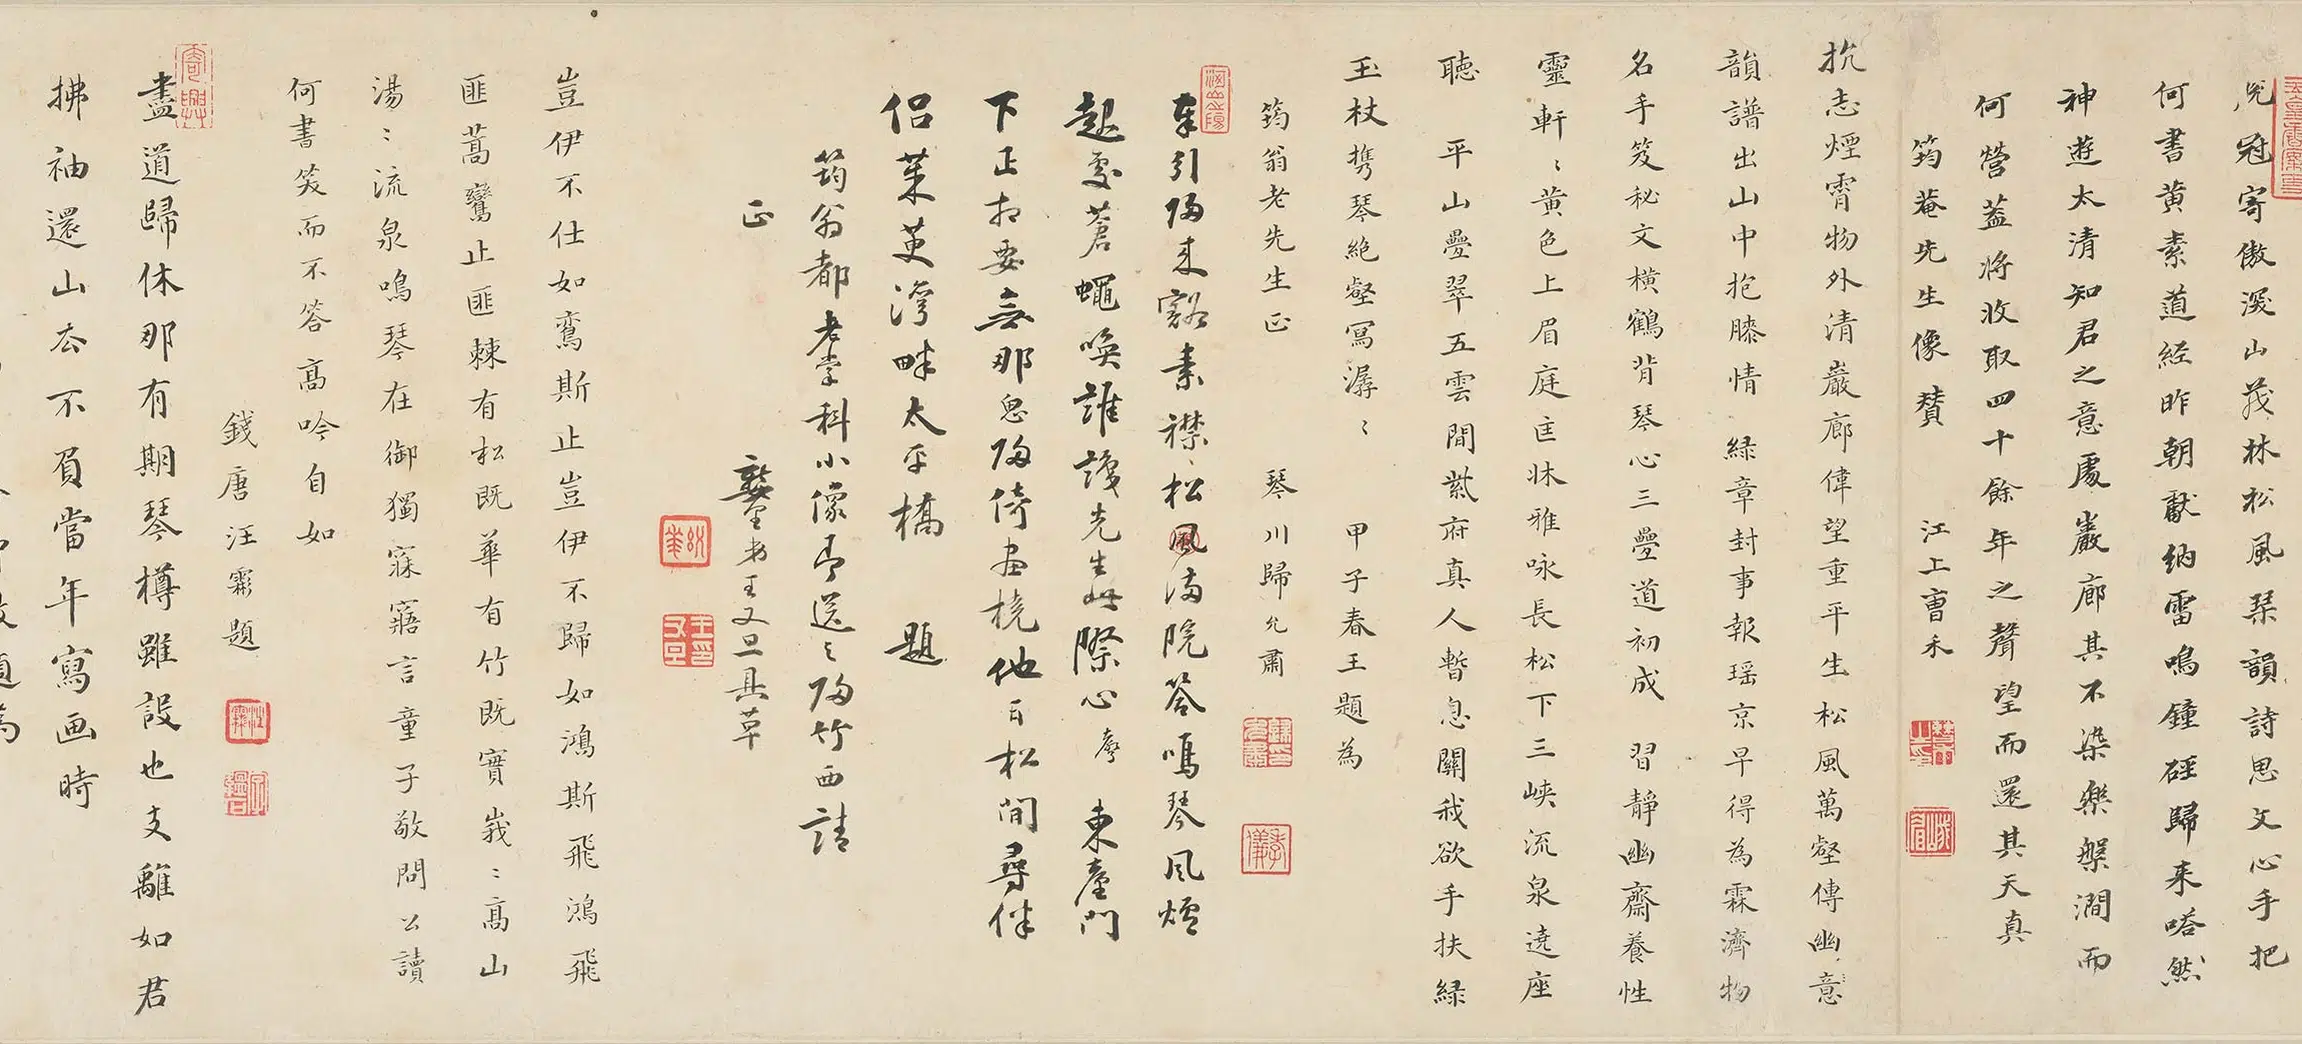 冠寄傲深山茂林松風琹韻詩思文心手把
何書黄素道經昨朝獻納雷鳴鐘硜歸来嗒然
神遊太清知君之意處巖廊其不染樂槃澗而
何營蓋将收取四十餘年之聲望而還其天真
筠菴先生像賛 江上曹禾
抗志煙霄物外清巖廊偉望重平生松風萬壑傳幽意
韻譜出山中抱膝情 緑章封事報瑶京早得為霖濟物
名手笈秘文横鶴背琴心三疊道初成 習靜幽齋養性
靈軒〻黄色上眉庭匡牀雅咏長松下三峽流泉遶座
聽 平山疊翠五雲間紫府真人暫息關我欲手扶緑
玉杖携琴絶壑冩潺〻 甲子春王題為
筠翁老先生正 琴川歸允肅
引歸来豁素襟松風滿院答鳴琴風爐
起處蒼蠅喚誰識先生此際心 東臺門
下正相要無那思歸倚畫橈他日松間尋伴
侣茱萸灣畔太平橋 題
筠翁都老掌科小像即送之歸竹西請
正 王又旦具草
豈伊不仕如鸞斯止豈伊不歸如鴻斯飛鴻飛
匪蒿鸞止匪棘有松既華有竹既實峩〻高山
湯〻流泉鳴琴在御獨寐寤言童子敬問公讀
何書笑而不答高吟自如
錢唐汪霦題
盡道歸休那有期琴樽雖設也支離如君
拂袖還山去不負當年寫画時